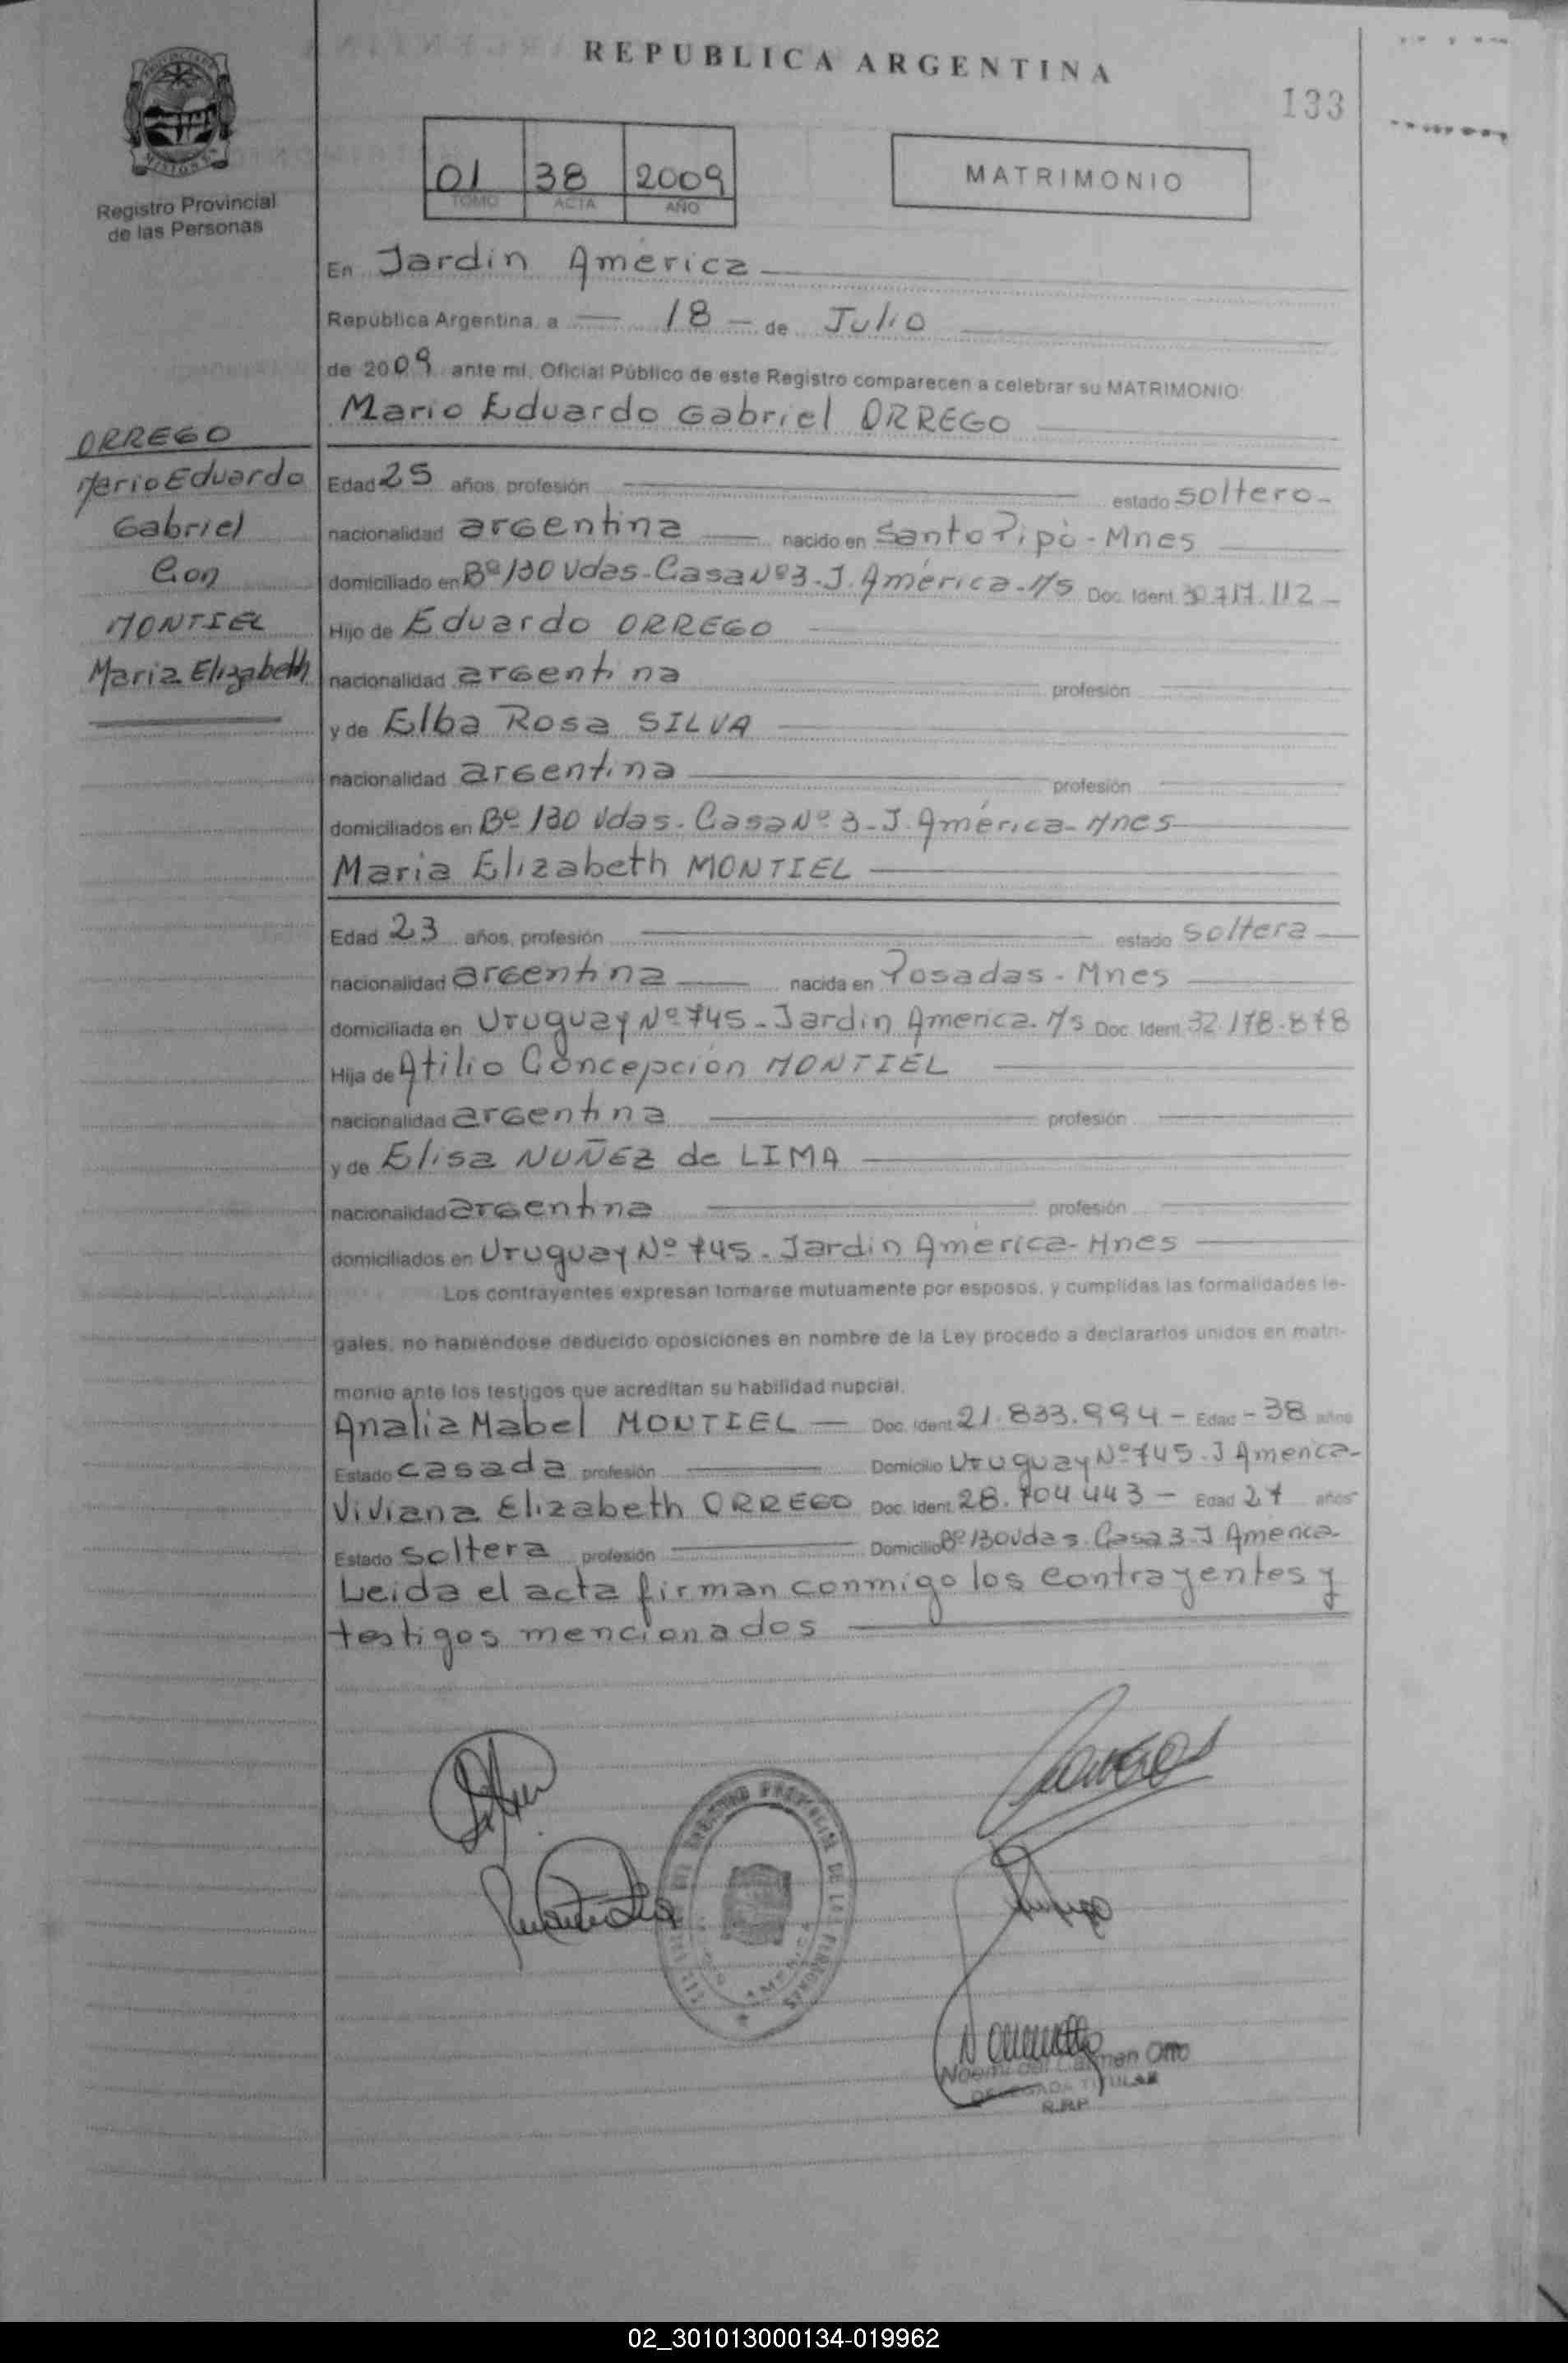 REPUBLICA ARGENTINA
133
PROVINCIA DE
MISIONES
Registro Provincial
de las Personas
01 38 2009
TOMO ACTA AÑO
MATRIMONIO
En Jardín América
República Argentina, a 18 de Julio
de 2009 ante mí, Oficial Público de este Registro comparecen a celebrar su MATRIMONIO:
Mario Eduardo Gabriel ORREGO
ORREGO
Mario Eduardo
Gabriel
Con
MONTIEL
Maria Elizabeth
Edad 25 años, profesión estado soltero-
nacionalidad argentina nacido en Santo Pipó - Mnes
domiciliado en Bº 130 Vdas - Casa Nº 3 - J. América - M/s Doc. Ident. 30.717.112 -
Hijo de Eduardo ORREGO
nacionalidad argentina profesión
y de Elba Rosa SILVA
nacionalidad argentina profesión
domiciliados en Bº 130 Vdas - Casa Nº 3 - J. América - Mnes
Maria Elizabeth MONTIEL
Edad 23 años, profesión estado soltera
nacionalidad argentina nacida en Posadas - Mnes
domiciliada en Uruguay Nº 745 - Jardín América - M/s Doc. Ident. 32.178.878
Hija de Atilio Concepción MONTIEL
nacionalidad argentina profesión
y de Elisa NUÑEZ de LIMA
nacionalidad argentina profesión
domiciliados en Uruguay Nº 745 - Jardín América - Mnes
Los contrayentes expresan tomarse mutuamente por esposos, y cumplidas las formalidades le-
gales, no habiéndose deducido oposiciones en nombre de la Ley procedo a declararlos unidos en matri-
monio ante los testigos que acreditan su habilidad nupcial.
Analia Mabel MONTIEL — Doc. Ident. 21.833.994 - Edad - 38 años
Estado casada profesión Domicilio Uruguay Nº 745 - J América -
Viviana Elizabeth ORREGO Doc. Ident. 28.704.443 - Edad 27 años
Estado soltera profesión Domicilio Bº 130 Vdas. Casa 3 - J América -
Leida el acta firman conmigo los contrayentes y
testigos mencionados
REGISTRO PROVINCIAL DE LAS PERSONAS
Noemi del Carmen Otto
DELEGADA TITULAR
R.R.P
02_301013000134-019962